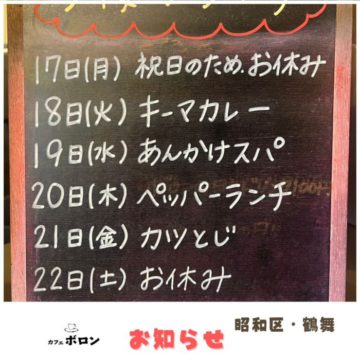 17日(月) 祝日のため、お休み
18日(火) キーマカレー
19日(水) あんかけスパ
20日(木) ペッパーランチ
21日(金) カツとじ
22日(土) お休み
カフェ ボロン
お知らせ
昭和区・鶴舞